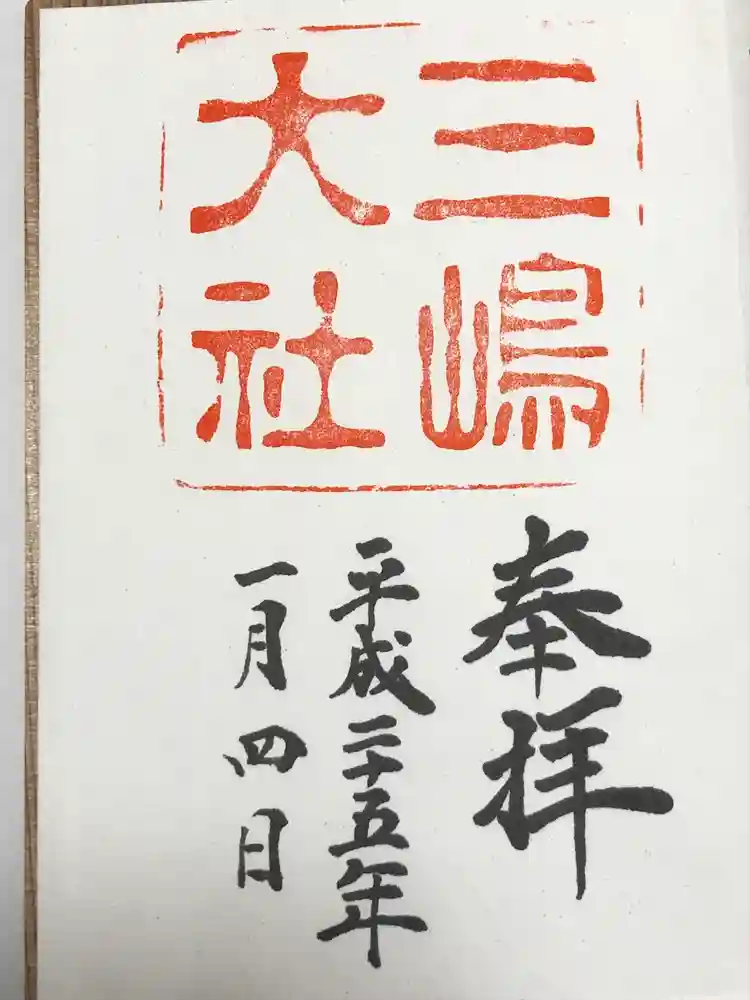 三嶋
大社
奉拝
平成二十五年
一月四日